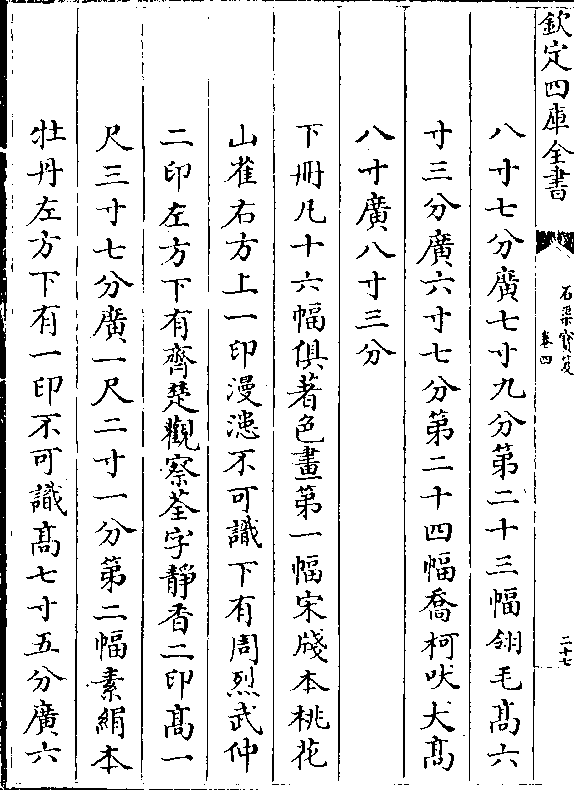 欽定四庫全書
石渠寶笈
卷四
二十七
八寸七分廣七寸九分第二十三幅翎毛髙六
寸三分廣六寸七分第二十四幅喬柯吠犬髙
八寸廣八寸三分
下冊凡十六幅俱著色畫第一幅宋牋本桃花
山雀右方上一印漫漶不可識下有周烈武仲
二印左方下有齊楚觀察荃字靜香二印髙一
尺三寸七分廣一尺二寸一分第二幅素絹本
牡丹左方下有一印不可識髙七寸五分廣六